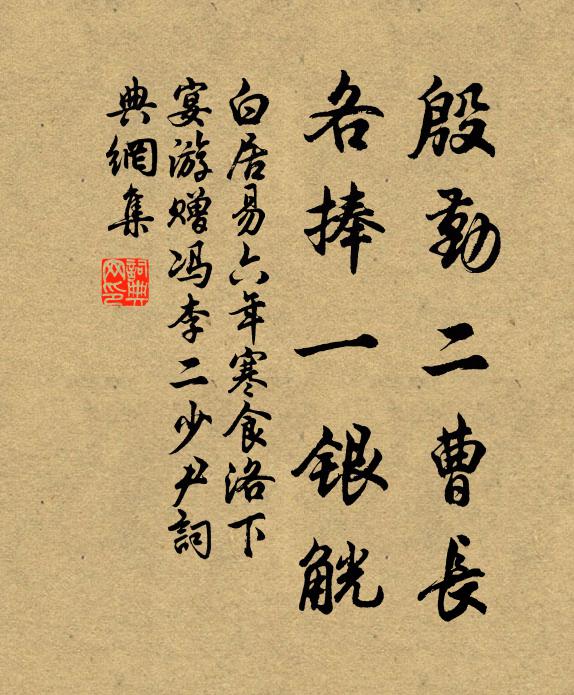 殷勤二曹長
各捧一銀觥
白居易六年寒食洛下
宴游赠冯李二少尹詞
典網集
詞典
网印